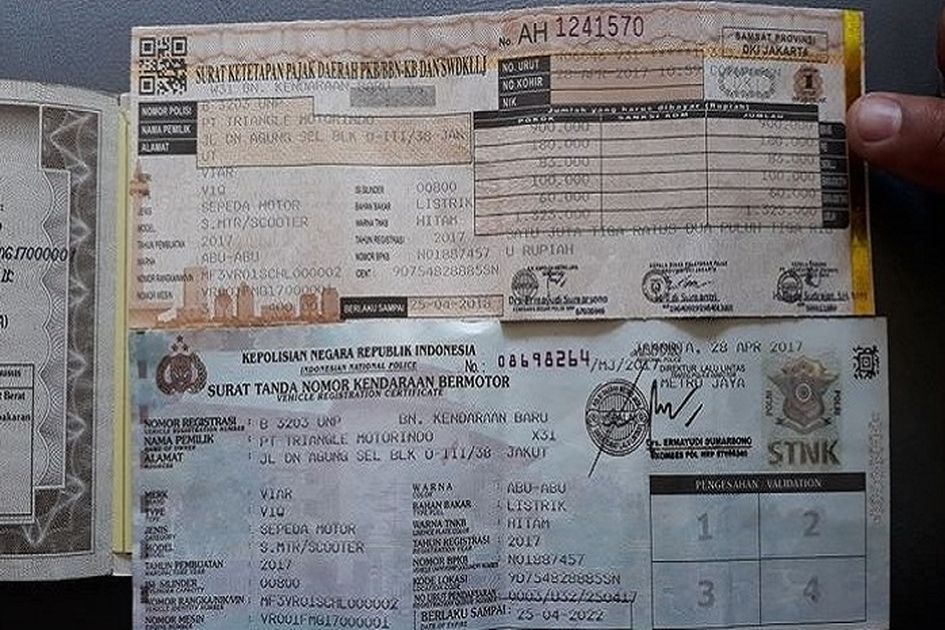 No AH 1241570
SAMSAT PROVINSI
DKI JAKARTA
SURAT KETETAPAN PAJAK DAERAH PKB/BBN-KB DAN SWDKLLJ
W31 BN. KENDARAAN BARU
NO. URUT
NO. KOHIR
28 APR 2017 10:59
NIK
NOMOR POLISI B 3203 UNP
NAMA PEMILIK PT TRIANGLE MOTORINDO
ALAMAT JL DN AGUNG SEL BLK O-III/38 JAK
UT
Jumlah yang harus dibayar (Rupiah)
POKOK SANKSI ADM JUMLAH
900.000 900.000
180.000 180.000
83.000 83.000
100.000 100.000
60.000 60.000
1.323.000 1.323.000
SATU JUTA TIGA RATUS DUA PULUH TIGA RIB
U RUPIAH
VIAR
V1Q
JENIS SEPEDA MOTOR
MODEL S.MTR/SCOOTER
TAHUN PEMBUATAN 2017
WARNA ABU-ABU
NOMOR RANGKA/NIK MF3VR01SCHL000002
NOMOR MESIN VR001FMG17000001
ISI SILINDER 00800
BAHAN BAKAR LISTRIK
WARNA TNKB HITAM
TAHUN REGISTRASI 2017
NOMOR BPKB N01887457
9075482885SN
BERLAKU SAMPAI 25-04-2018
Drs. Ernayudi Sumarsono
KEPOLISIAN NEGARA REPUBLIK INDONESIA
INDONESIAN NATIONAL POLICE
No.: 08698264/MJ/2017
SURAT TANDA NOMOR KENDARAAN BERMOTOR
VEHICLE REGISTRATION CERTIFICATE
JAKARTA, 28 APR 2017
DIREKTUR LALU LINTAS
METRO JAYA
Drs. ERMAYUDI SUMARSONO
POLRI POLRI
STNK
NOMOR REGISTRASI : B 3203 UNP BN. KENDARAAN BARU
NAMA PEMILIK : PT TRIANGLE MOTORINDO X31
ALAMAT : JL DN AGUNG SEL BLK O-III/38 JAKUT
MERK : VIAR
TYPE : V1Q
JENIS : SEPEDA MOTOR
MODEL : S.MTR/SCOOTER
TAHUN PEMBUATAN : 2017
ISI SILINDER : 00800
NOMOR RANGKA/NIK/VIN : MF3VR01SCHL000002
NOMOR MESIN : VR001FMG17000001
WARNA : ABU-ABU
BAHAN BAKAR : LISTRIK
WARNA TNKB : HITAM
TAHUN REGISTRASI : 2017
NOMOR BPKB : N01887457
KODE LOKASI : 9075482885SN
NO URUT PENDAFTARAN : 0003/032/250417
BERLAKU SAMPAI : 25-04-2022
PENGESAHAN VALIDATION
1 2
3 4